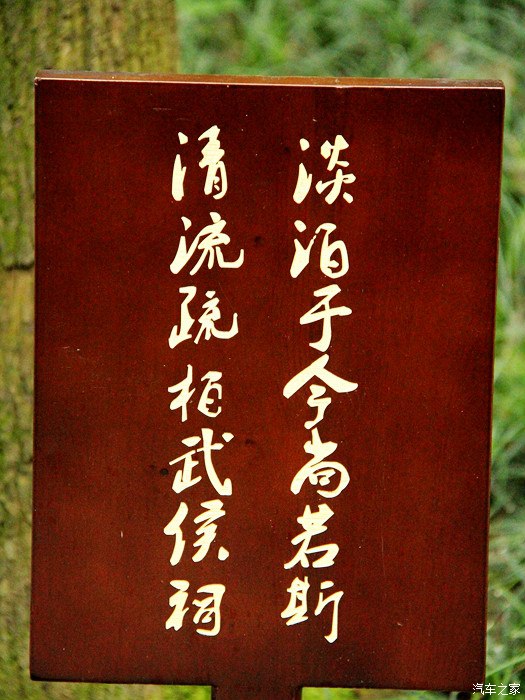 淡泊于今尚若斯
清流疏柏武侯祠
汽车之家